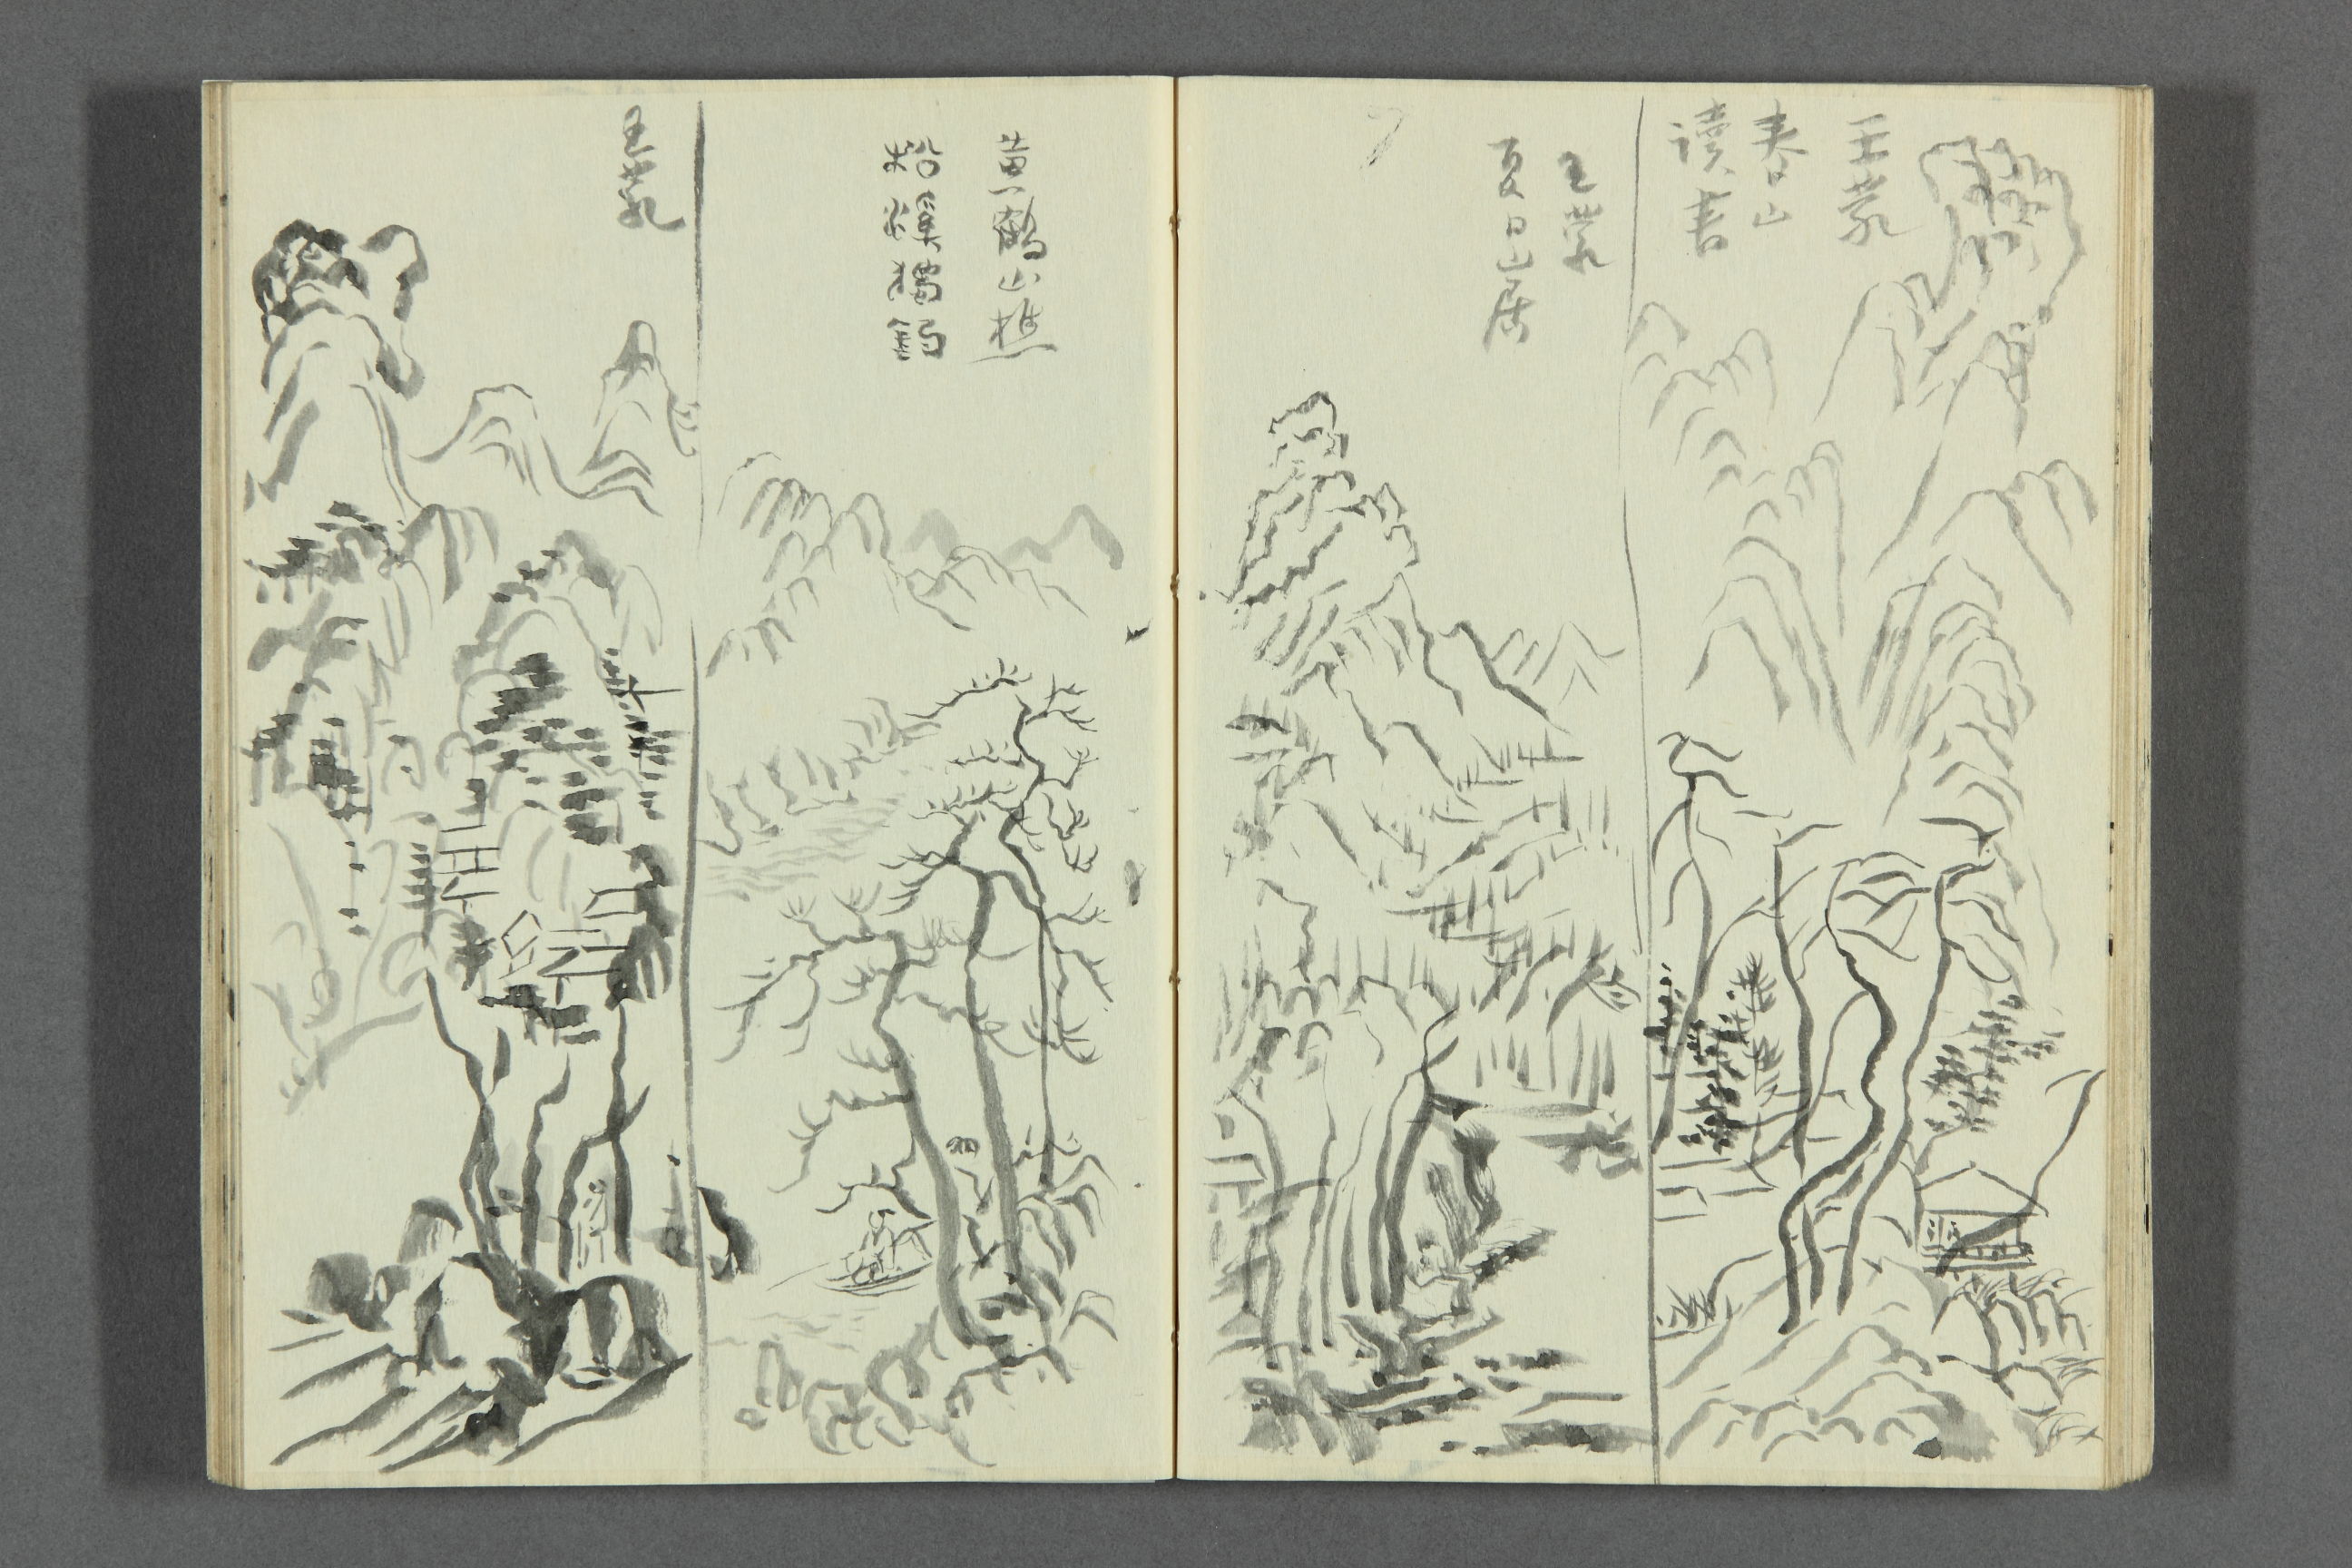 王蒙
春山
讀書
王蒙
夏日山居
黄鶴山樵
王蒙